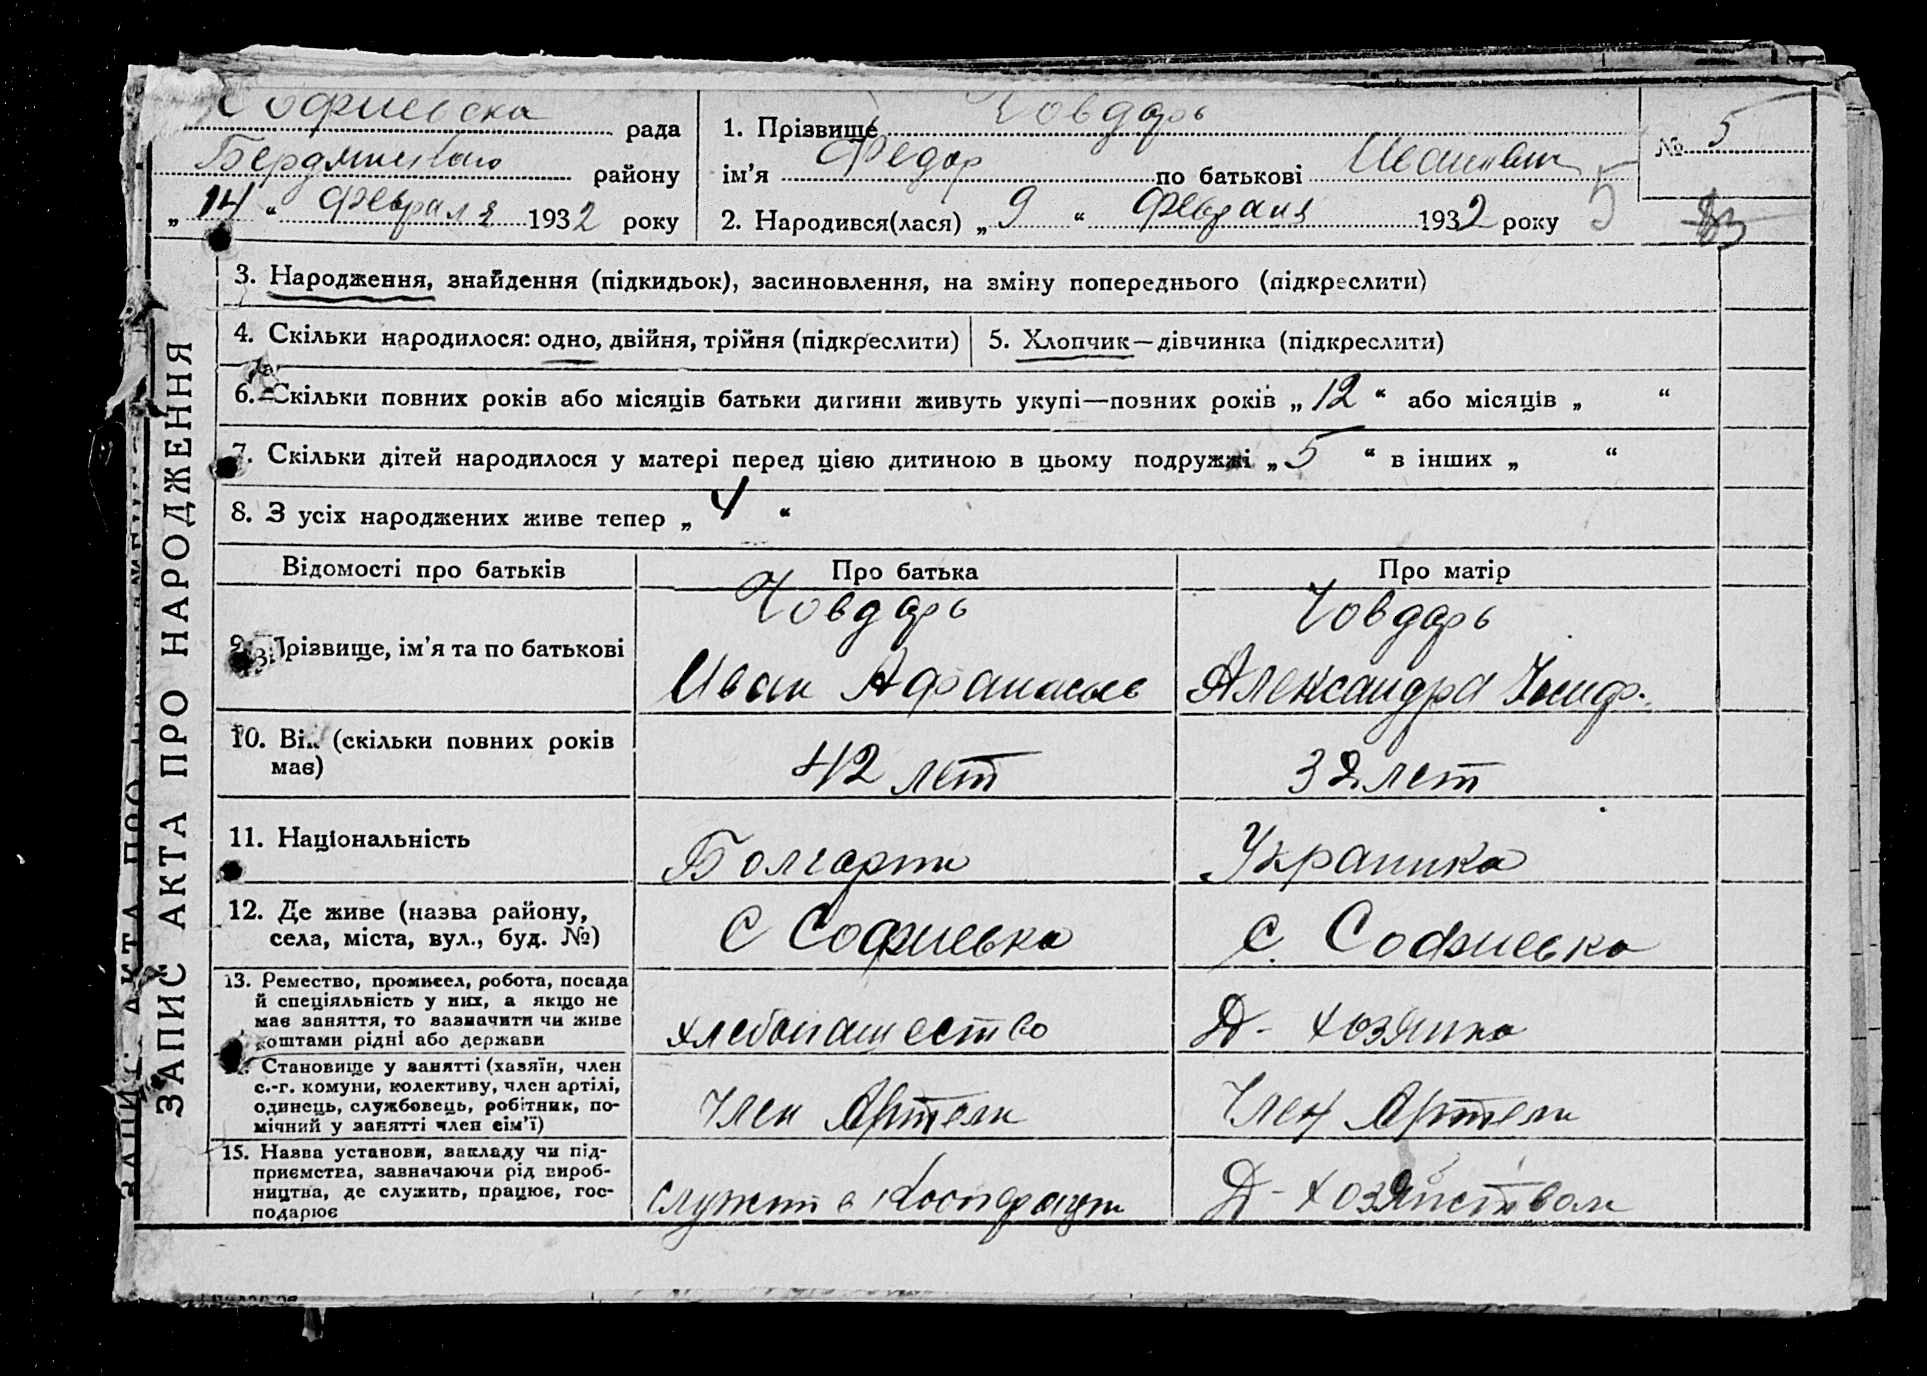 Софиевска рада
Бердянского району
„14“ Февраля 1932 року
1. Прізвище Човдарь
ім’я Федор по батькові Иванович
2. Народився(лася) „9“ Февраля 1932 року 5
№ 5
3. Народження, знайдення (підкидьок), засиновлення, на зміну попереднього (підкреслити)
4. Скільки народилося: одно, двійня, трійня (підкреслити)
5. Хлопчик—дівчинка (підкреслити)
6. Скільки повних років або місяців батьки дитини живуть укупі—повних років „12“ або місяців „ “
7. Скільки дітей народилося у матері перед цією дитиною в цьому подружжі „5“ в інших „ “
8. З усіх народжених живе тепер „4“
Відомості про батьків
Про батька
Про матір
9. Прізвище, ім’я та по батькові
Човдарь
Иван Афанасьев
Човдарь
Александра Иосиф.
10. Вік (скільки повних років
має)
42 лет
32 лет
11. Національність
Болгарин
Украинка
12. Де живе (назва району,
села, міста, вул., буд. №)
С Софиевка
С. Софиевка
13. Ремество, промисел, робота, посада
й спеціяльність у них, а якщо не
має заняття, то зазначити чи живе
коштами рідні або держави
хлебопашество
Д- хозяйка
Становище у занятті (хазяїн, член
с.-г. комуни, колективу, член артілі,
одинець, службовець, робітник, по-
мічний у занятті член сім’ї)
Член Артели
Член Артели
15. Назва установи, закладу чи під-
приємства, зазначаючи рід вироб-
ництва, де служить, працює, гос-
подарює
служит в Кооперации
Д-хозяйством
ЗАПИС АКТА ПРО НАРОДЖЕННЯ